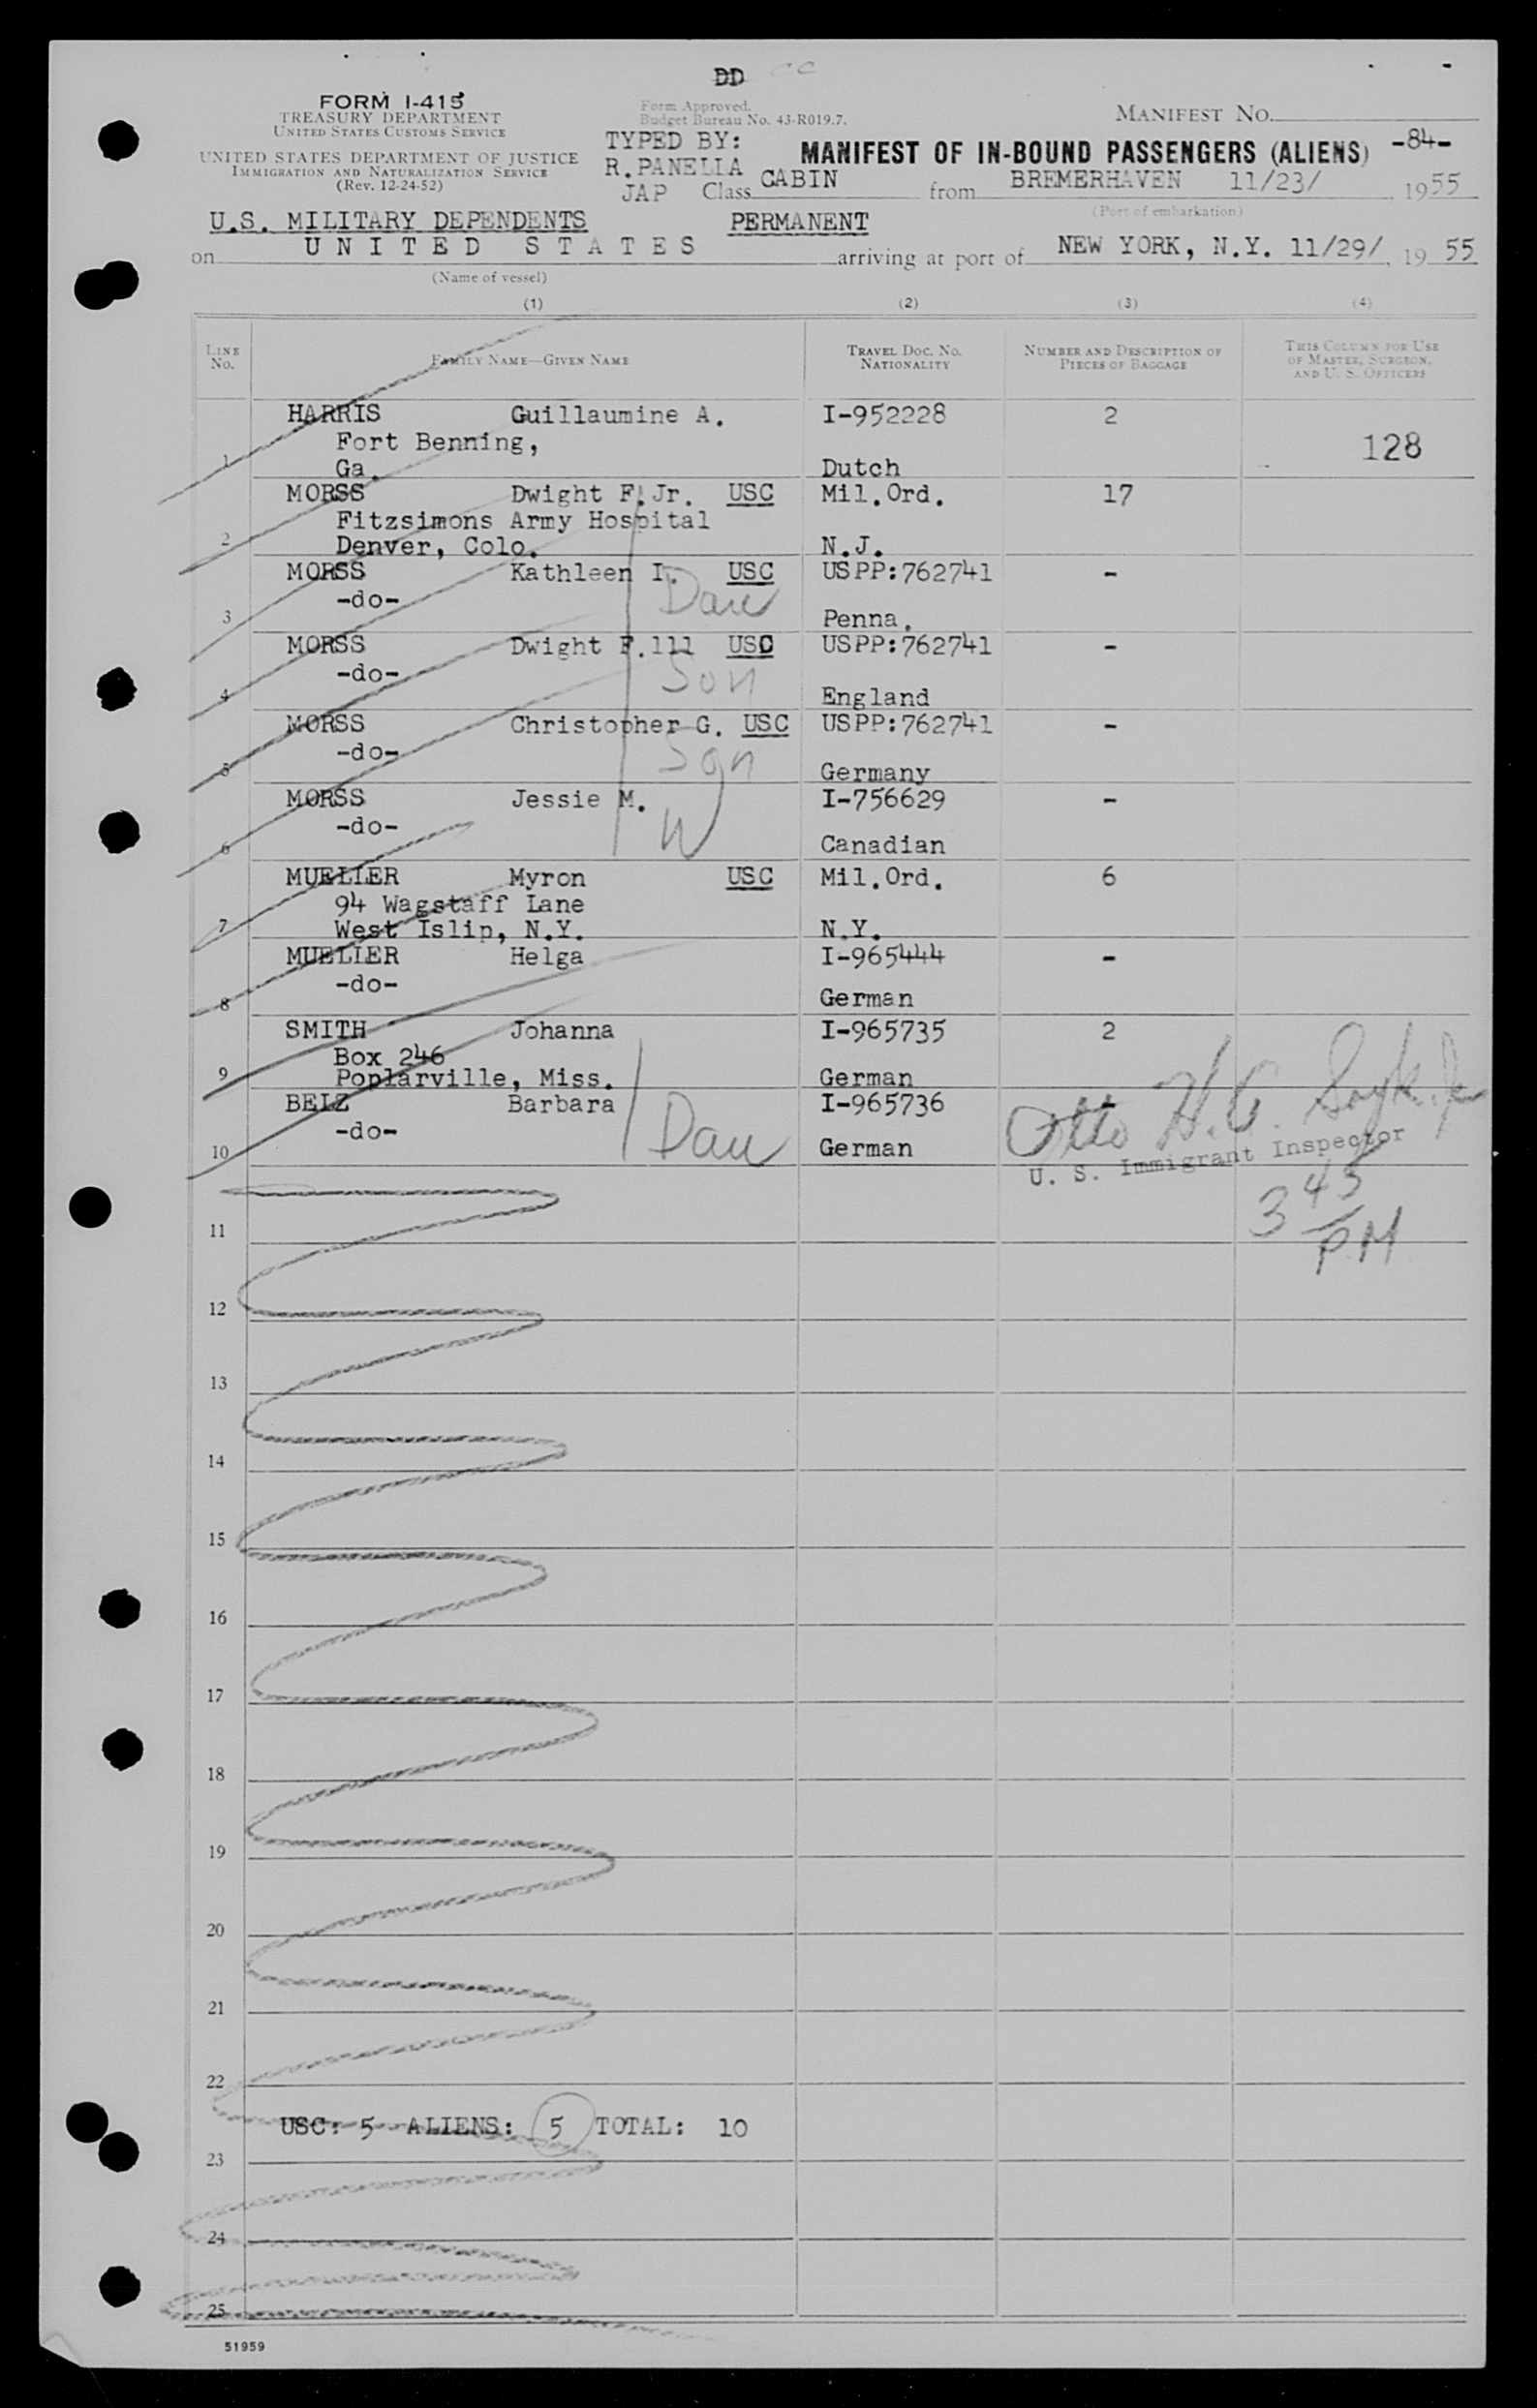 DD CC
FORM I-415
TREASURY DEPARTMENT
UNITED STATES CUSTOMS SERVICE
UNITED STATES DEPARTMENT OF JUSTICE
IMMIGRATION AND NATURALIZATION SERVICE
(Rev. 12-24-52)
Form Approved.
Budget Bureau No. 43-R019.7.
TYPED BY:
R.PANELLA
JAP
MANIFEST NO.
MANIFEST OF IN-BOUND PASSENGERS (ALIENS) -84-
Class CABIN from BREMERHAVEN 11/23/ 1955
(Port of embarkation)
U.S. MILITARY DEPENDENTS PERMANENT
on UNITED STATES arriving at port of NEW YORK, N.Y. 11/29/ 19 55
(Name of vessel)
(1) (2) (3) (4)
LINE NO. FAMILY NAME—GIVEN NAME TRAVEL DOC. NO. NATIONALITY NUMBER AND DESCRIPTION OF PIECES OF BAGGAGE THIS COLUMN FOR USE OF MASTER, SURGEON, AND U. S. OFFICERS
HARRIS Guillaumine A. I-952228 2
Fort Benning, 128
1 Ga. Dutch
MORSS Dwight F.Jr. USC Mil.Ord. 17
Fitzsimons Army Hospital
2 Denver, Colo. N.J.
MORSS Kathleen I. USC USPP:762741 -
-do- Dau
3 Penna.
MORSS Dwight F.lll USC USPP:762741 -
-do- Son
4 England
MORSS Christopher G. USC USPP:762741 -
-do- Son
5 Germany
MORSS Jessie M. I-756629 -
-do- W
6 Canadian
MUELLER Myron USC Mil.Ord. 6
94 Wagstaff Lane
7 West Islip, N.Y. N.Y.
MUELLER Helga I-965444 -
-do-
8 German
SMITH Johanna I-965735 2
Box 246
9 Poplarville, Miss. German
BELZ Barbara I-965736 -
-do- Dau
10 German
Otto H.C.
U. S. Immigrant Inspector
3 45
PM
11
12
13
14
15
16
17
18
19
20
21
22
USC: 5 ALIENS: 5 TOTAL: 10
23
24
25
51959